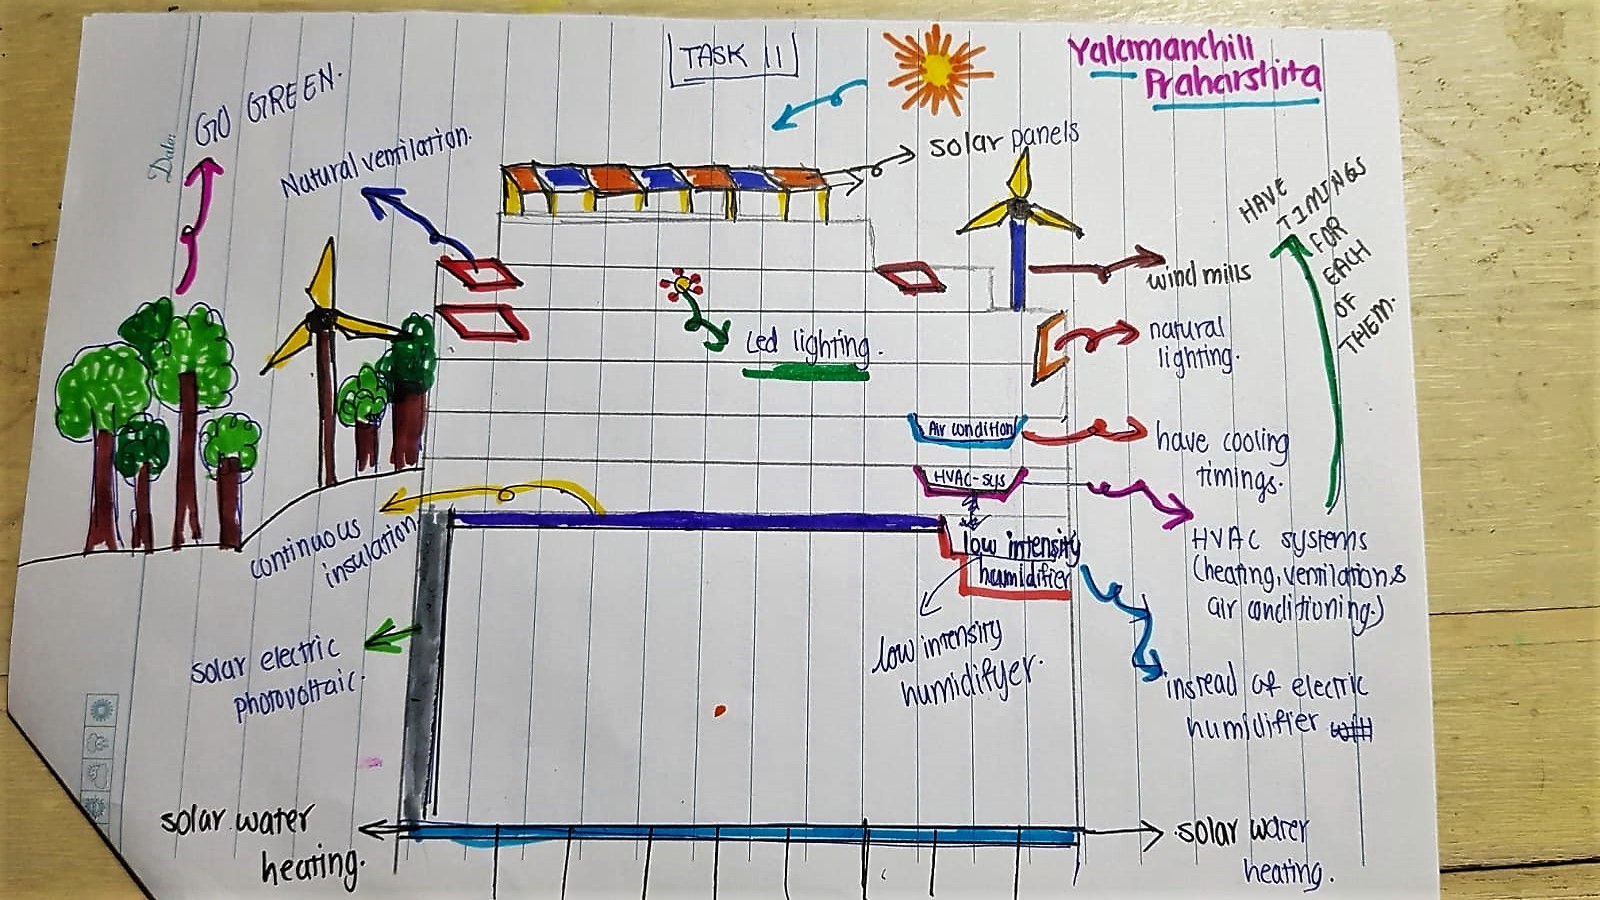 TASK 11
Yalamanchili
Praharshita
Date:
GO GREEN.
Natural ventilation.
solar panels
HAVE
TIMINGS
FOR
EACH
OF
THEM.
wind mills
Led lighting.
natural
lighting.
Air condition
have cooling
timings.
HVAC-sys
continuous
insulation
low intensity
humidifier
HVAC systems
(heating, ventilation &
air conditiioning.)
solar electric
photovoltaic.
low intensity
humidifyer.
instead of electric
humidifier
solar water
heating.
solar water
heating.